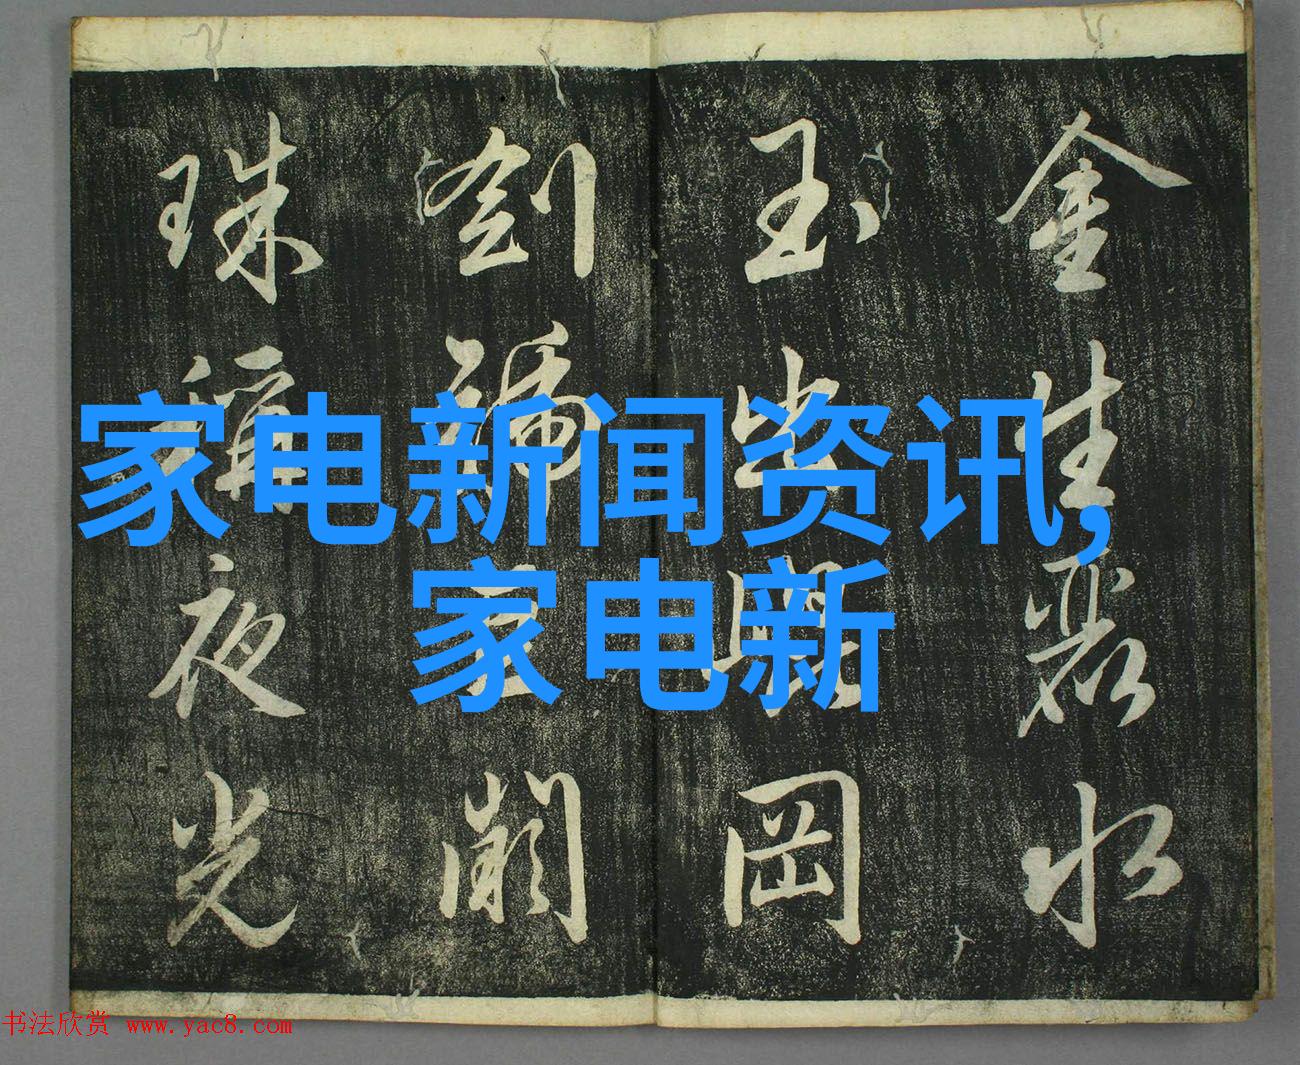 金生麗水
玉出崐岡
劍號巨闕
珠稱夜光
家电新闻资讯,
家电新
书法欣赏 www.yac8.com